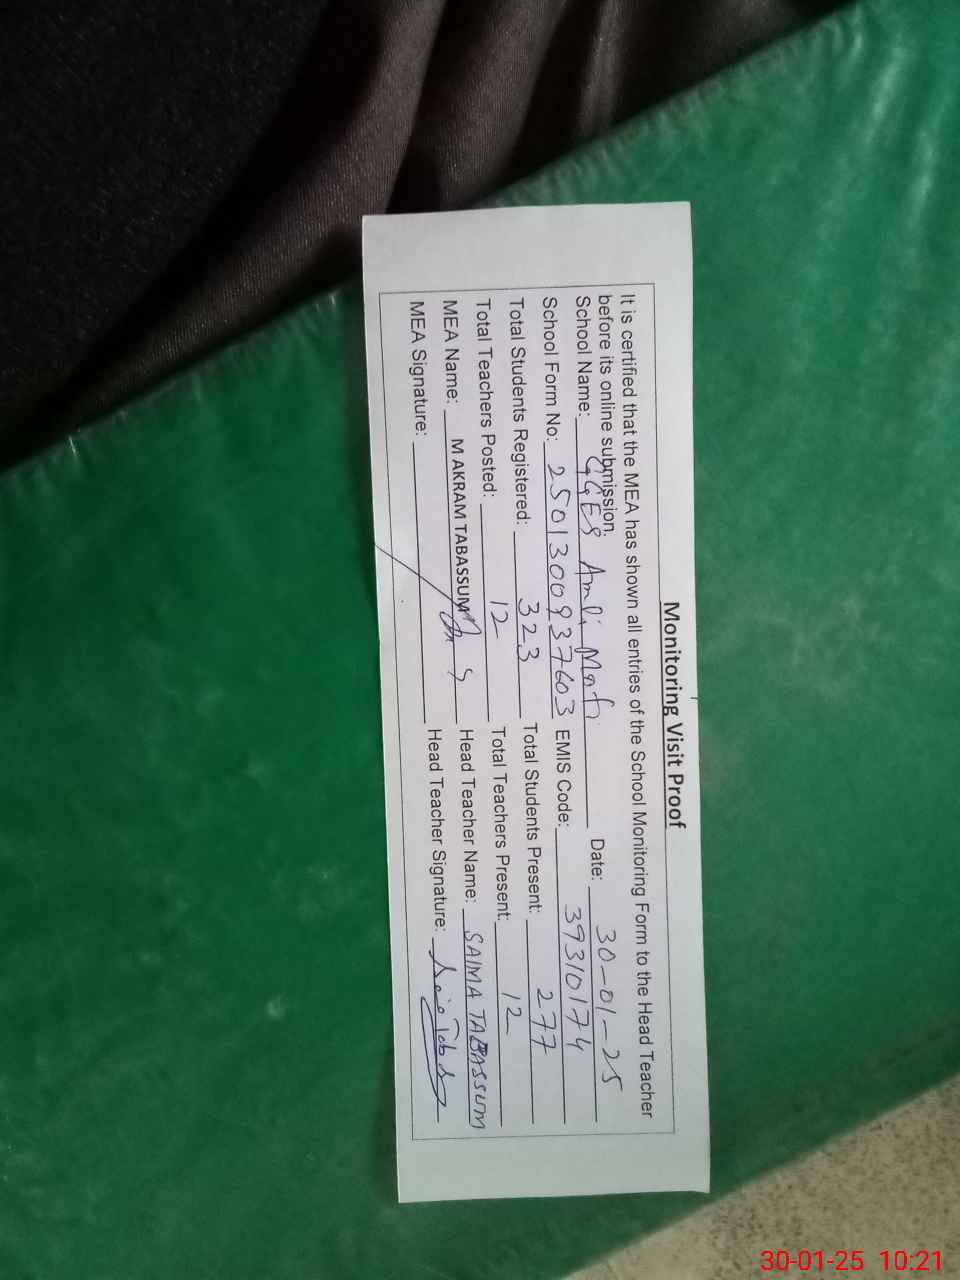 Monitoring Visit Proof
It is certified that the MEA has shown all entries of the School Monitoring Form to the Head Teacher
before its online submission.
School Name: GGES Amli Moti Date: 30-01-25
School Form No: 2501300937603 EMIS Code: 39310174
Total Students Registered: 323 Total Students Present: 277
Total Teachers Posted: 12 Total Teachers Present: 12
MEA Name: M AKRAM TABASSUM Head Teacher Name: SAIMA TABASSUM
MEA Signature: Head Teacher Signature:
30-01-25 10:21